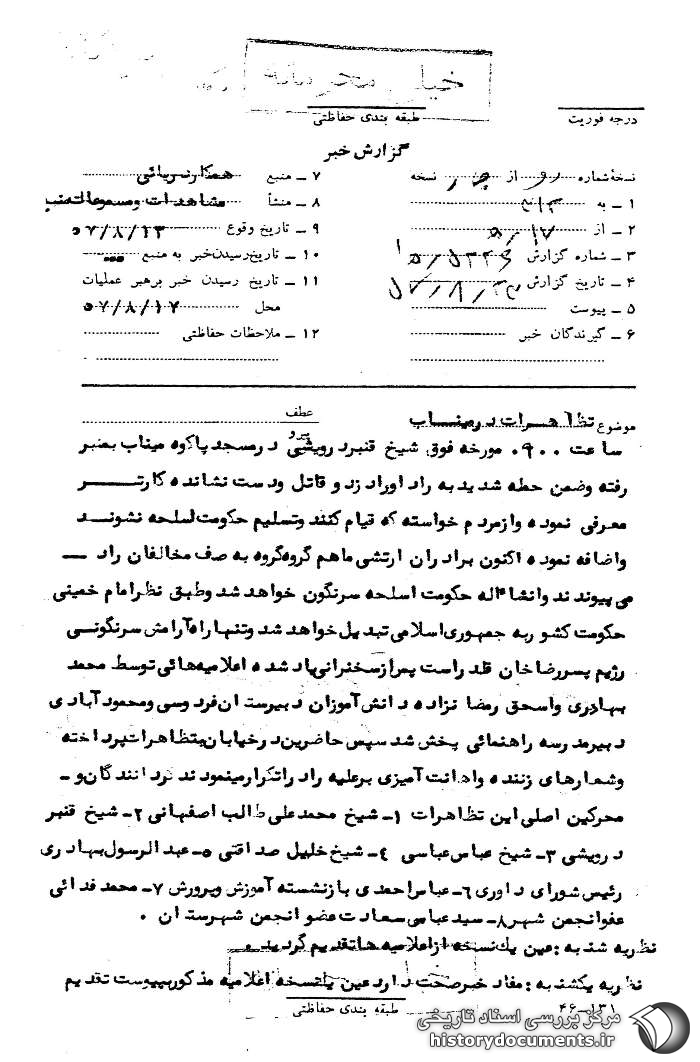 خیلی محرمانه
درجه فوریت
طبقه بندی حفاظتی
گزارش خبر
نسخهٔ شماره ... از ... نسخه
۱ ـ به ۳۱۲
۲ ـ از
۳ ـ شماره گزارش
۴ ـ تاریخ گزارش
۵ ـ پیوست
۶ ـ گیرندگان خبر
۷ ـ منبع همکار دریائی
۸ ـ منشأ مشاهدات و مسموعات منبع
۹ ـ تاریخ وقوع ۵۷/۸/۱۳
۱۰ ـ تاریخ رسیدن خبر به منبع
۱۱ ـ تاریخ رسیدن خبر برهبر عملیات
محل ۵۷/۸/۱۷
۱۲ ـ ملاحظات حفاظتی
موضوع تظاهرات در میناب
عطف
پیرو
ساعت ۰۹۰۰ مورخه فوق شیخ قنبر درویشی در مسجد پاکوه میناب بمنبر
رفته وضمن حمله شدید به راد اوراد زد و قاتل ودست نشانده کارتر
معرفی نموده وازمردم خواسته که قیام کنند وتسلیم حکومت اسلحه نشوند
واضافه نموده اکنون برادران ارتشی ماهم گروه گروه به صف مخالفان راد ـــ
می پیوندند وانشاءاله حکومت اسلحه سرنگون خواهد شد وطبق نظرامام خمینی
حکومت کشور به جمهوری اسلامی تبدیل خواهد شد وتنها راه آرامش سرنگونی
رژیم پسررضاخان قلدر است پس از سخنرانی یاد شده اعلامیه هائی توسط محمد
بهادری واسحق رمضانزاده دانش آموزان دبیرستان فردوسی ومحمود آبادی
دبیرمدرسه راهنمائی پخش شد سپس حاضرین درخیابان بتظاهرات پرداخته
وشعارهای زننده واهانت آمیزی برعلیه راد راتکرار مینمودند گردانندگان و ـ
محرکین اصلی این تظاهرات ۱ـ شیخ محمدعلی طالب اصفهانی ۲ـ شیخ قنبر
درویشی ۳ـ شیخ عباس عباسی ۴ـ شیخ خلیل صداقتی ۵ـ عبدالرسول بهادری
رئیس شورای داوری ۶ـ عباس احمدی بازنشسته آموزش وپرورش ۷ـ محمد فدائی
عضوانجمن شهر ۸ـ سیدعباس سعادت عضو انجمن شهرستان .
نظریه شنبه : عین یک نسخه ازاعلامیه ها تقدیم گردید .
نظریه یکشنبه : مفاد خبرصحت دارد عین یک نسخه اعلامیه مذکور بپیوست تقدیم
طبقه بندی حفاظتی
۴۶-۱۳۱
مرکز بررسی اسناد تاریخی
historydocuments.ir